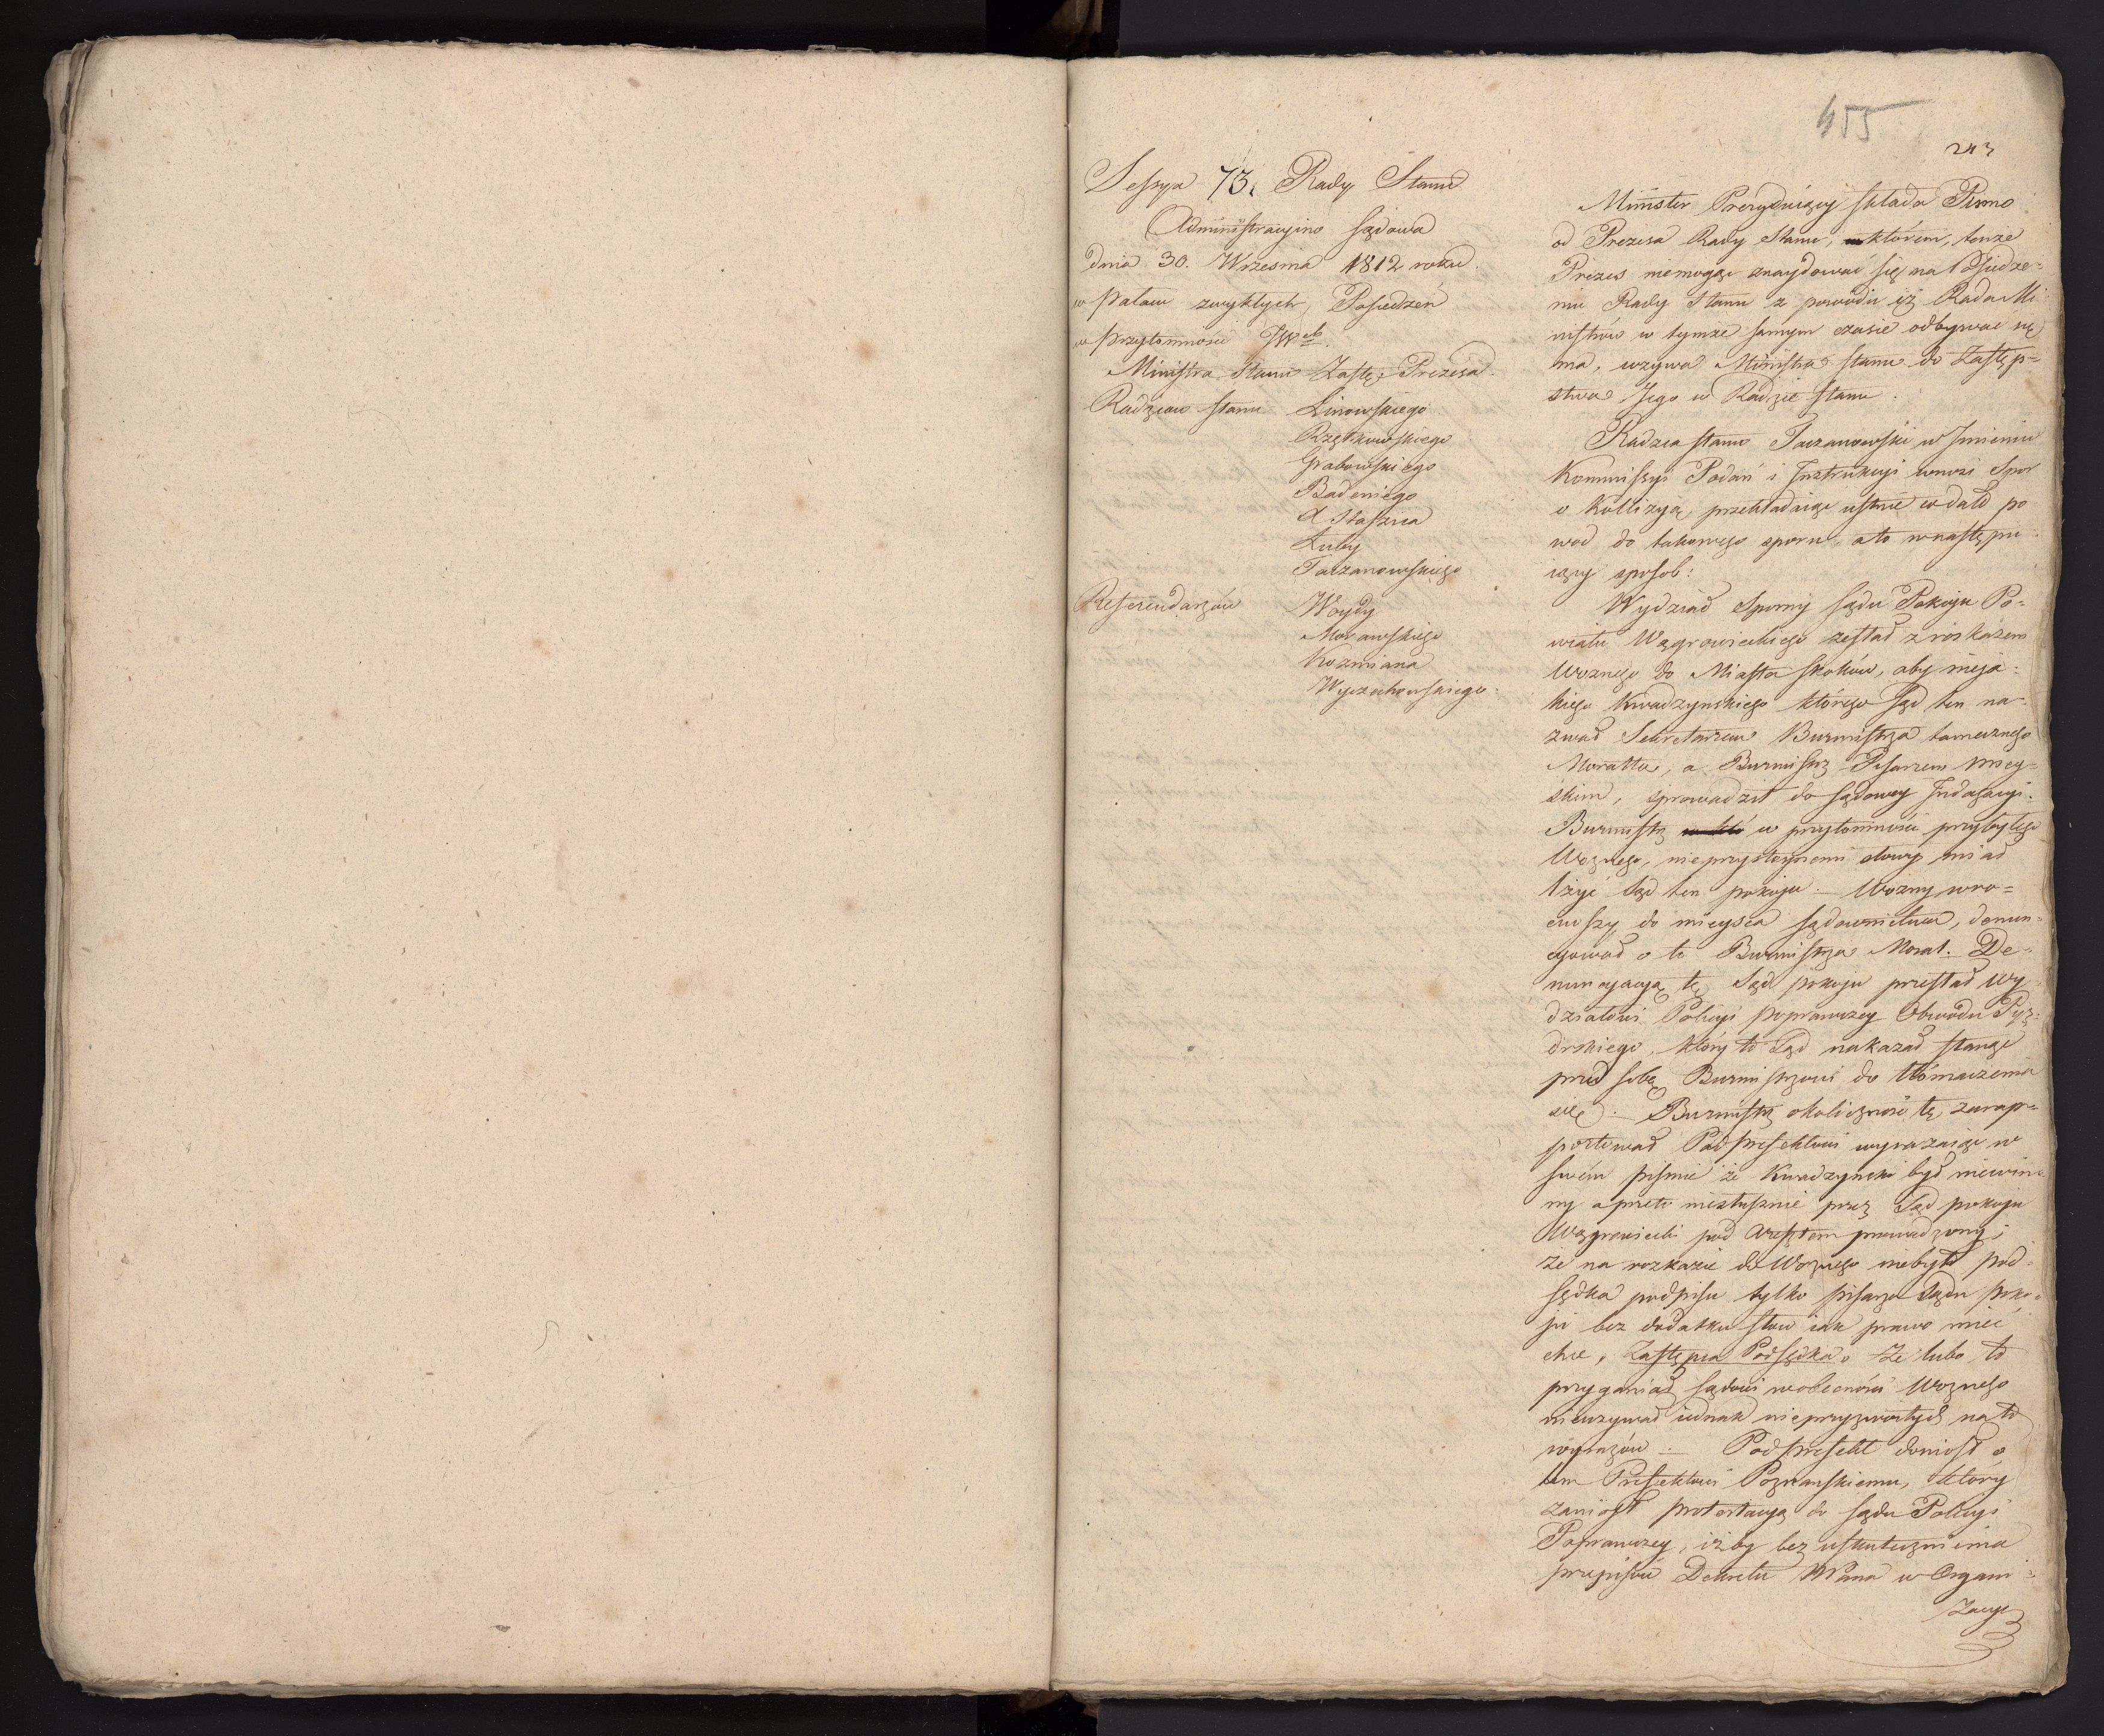 455
243
Sessya 73. Rady Stanu
Administracyino sądowa
dnia 30. Wrzesnia 1812 roku.
w Pałacu zwykłych Posiedzeń
w przytomności JW
Ministra Stanu Zastę: Prezesa
Radzców stanu Linowskiego
Rzętkowskiego
Grabowskiego
Badeniego
X Staszica
Łuby
Taczanowskiego
Referendarzów Woydy
Morawskiego
Kozmiana
Wyczechowskiego
Minister Prezyduiący składa Pismo
od Prezesa Rady Stanu, w którém, tenze
Prezes niemogąc znaydować się na Posiedze=
niu Rady Stanu z powodu iż Rada Mi
nistrów w tymze samym czasie odbywać się
ma, wzywa Ministra stanu do Zastęp=
stwa Jego w Radzie stanu.
Radzca stanu Taczanowski w Jmieniu
Kommissyi Podań i Jnstrukcyi wnosi Spor
o Kollizyą, przekładaiąc ustnie co dało po
wod do takowego sporu a to w nastepu
iący sposob:
Wydział Sporny sądu Pokoju Po=
wiatu Wągrowieckiego zesłał z roskazem
Woznego do Miasta skoków, aby nieja=
kiego Kwadzynskiego którego sąd ten na=
zwał Sekretarzem Burmistrza tamecznego
Moratta, a Burmistrz Pisarzem miey=
skim, sprowadził do sądowey Jndagacyi.
Burmistrz w przytomności przybyłego
Woznego, nieprzystoynemi słowy miał
lżyć sąd ten pokoju. — Wozny wro=
ciwszy do mieysca sądownictwa, denun=
cyował o to Burmistrza Morat. De=
nuncyacyą tę Sąd pokoju przesłał Wy=
działowi Policyi poprawczey Obwodu Pyz=
drskiego, który to Sąd nakazał stanąć
przed sobą Burmistrzowi do tłómaczenia
się. — Burmistrz okoliczność tę zarap=
portował Podprefektowi wyrazaiąc w
swém piśmie że Kwadzynski był niewin=
ny a przeto niesłusznie przez Sąd pokoju
Wągrowiecki pod Aresztem prowadzony;
że na rozkazie do Woznego niebyło pod=
sędka podpisu tylko pisarza Sądu poko=
ju bez dodatku słow iak prawo mieć
chce, Zastępca Podsędka. Że lubo to
przyganiał sądowi w obecności Woznego
nieuzywał iednak nieprzyzwoitych na to
wyrazów. — Podprefekt doniosł o
tem Prefektowi Poznanskiemu, który
zaniosł protestacyą do sądu Policyi
Poprawczey, iżby bez uskutecznienia
przepisów Dekretu NPana w Organi=
zacyi